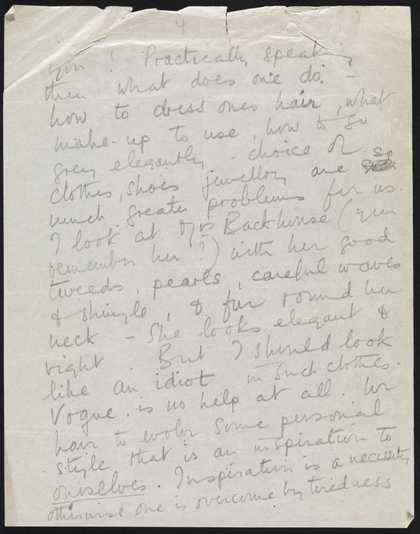 4
you! Practically speaking
then what does one do. -
how to dress ones hair, what
make-up to use, how to go
grey elegantly - choice of
clothes, shoes jewellery are so
much greater problems for us.
I look at Mrs Backhouse (you
remember her?) with her good
tweeds, pearls, careful waves
& shingle, & fur round her
neck - She looks elegant &
right. But I should look
like an idiot in such clothes.
Vogue is no help at all. We
have to evolve some personal
style that is an inspiration to
ourselves. Inspiration is a necessity
otherwise one is overcome by tiredness